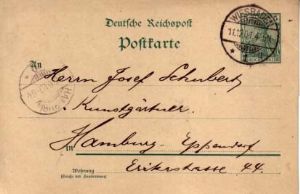 Deutsche Reichspost
Postkarte
WIESBADEN
An
Herrn Josef Schubert
Kunstgärtner
in Hamburg-Eppendorf
Erikastrasse 44.
Wohnung
(Straße und Hausnummer)